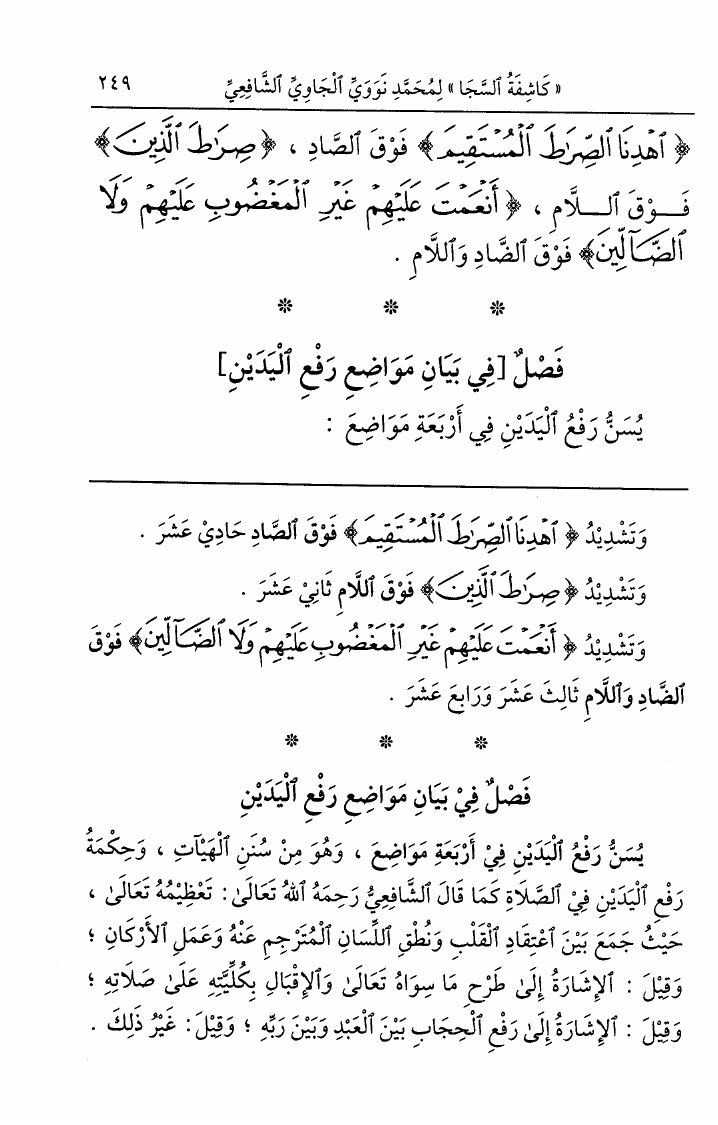 « كَاشِفَةُ ٱلسَّجَا » لِمُحَمَّدِ نَوَوَيِّ ٱلْجَاوِيِّ ٱلشَّافِعِيِّ ٢٤٩
﴿ ٱهْدِنَا ٱلصِّرَٰطَ ٱلْمُسْتَقِيمَ ﴾ فَوْقَ ٱلصَّادِ ، ﴿ صِرَٰطَ ٱلَّذِينَ ﴾
فَــوْقَ ٱلــلَّامِ ، ﴿ أَنْعَمْتَ عَلَيْهِمْ غَيْرِ ٱلْمَغْضُوبِ عَلَيْهِمْ وَلَا
ٱلضَّآلِّينَ ﴾ فَوْقَ ٱلضَّادِ وَٱللَّامِ .
* * *
فَصْلٌ [فِي بَيَانِ مَوَاضِعِ رَفْعِ ٱلْيَدَيْنِ]
يُسَنُّ رَفْعُ ٱلْيَدَيْنِ فِي أَرْبَعَةِ مَوَاضِعَ :
وَتَشْدِيْدُ ﴿ ٱهْدِنَا ٱلصِّرَٰطَ ٱلْمُسْتَقِيمَ ﴾ فَوْقَ ٱلصَّادِ حَادِيْ عَشَرَ .
وَتَشْدِيْدُ ﴿ صِرَٰطَ ٱلَّذِينَ ﴾ فَوْقَ ٱللَّامِ ثَانِيْ عَشَرَ .
وَتَشْدِيْدُ ﴿ أَنْعَمْتَ عَلَيْهِمْ غَيْرِ ٱلْمَغْضُوبِ عَلَيْهِمْ وَلَا ٱلضَّآلِّينَ ﴾ فَوْقَ
ٱلضَّادِ وَٱللَّامِ ثَالِثَ عَشَرَ وَرَابِعَ عَشَرَ .
* * *
فَصْلٌ فِيْ بَيَانِ مَوَاضِعِ رَفْعِ ٱلْيَدَيْنِ
يُسَنُّ رَفْعُ ٱلْيَدَيْنِ فِيْ أَرْبَعَةِ مَوَاضِعَ ، وَهُوَ مِنْ سُنَنِ ٱلْهَيْآتِ ، وَحِكْمَةُ
رَفْعِ ٱلْيَدَيْنِ فِيْ ٱلصَّلَاةِ كَمَا قَالَ ٱلشَّافِعِيُّ رَحِمَهُ ٱللهُ تَعَالَىٰ : تَعْظِيْمُهُ تَعَالَىٰ ،
حَيْثُ جَمَعَ بَيْنَ ٱعْتِقَادِ ٱلْقَلْبِ وَنُطْقِ ٱللِّسَانِ ٱلْمُتَرْجِمِ عَنْهُ وَعَمَلِ ٱلأَرْكَانِ ؛
وَقِيْلَ : ٱلإِشَارَةُ إِلَىٰ طَرْحِ مَا سِوَاهُ تَعَالَىٰ وَٱلإِقْبَالِ بِكُلِّيَّتِهِ عَلَىٰ صَلَاتِهِ ؛
وَقِيْلَ : ٱلإِشَارَةُ إِلَىٰ رَفْعِ ٱلْحِجَابِ بَيْنَ ٱلْعَبْدِ وَبَيْنَ رَبِّهِ ؛ وَقِيْلَ : غَيْرُ ذَلِكَ .